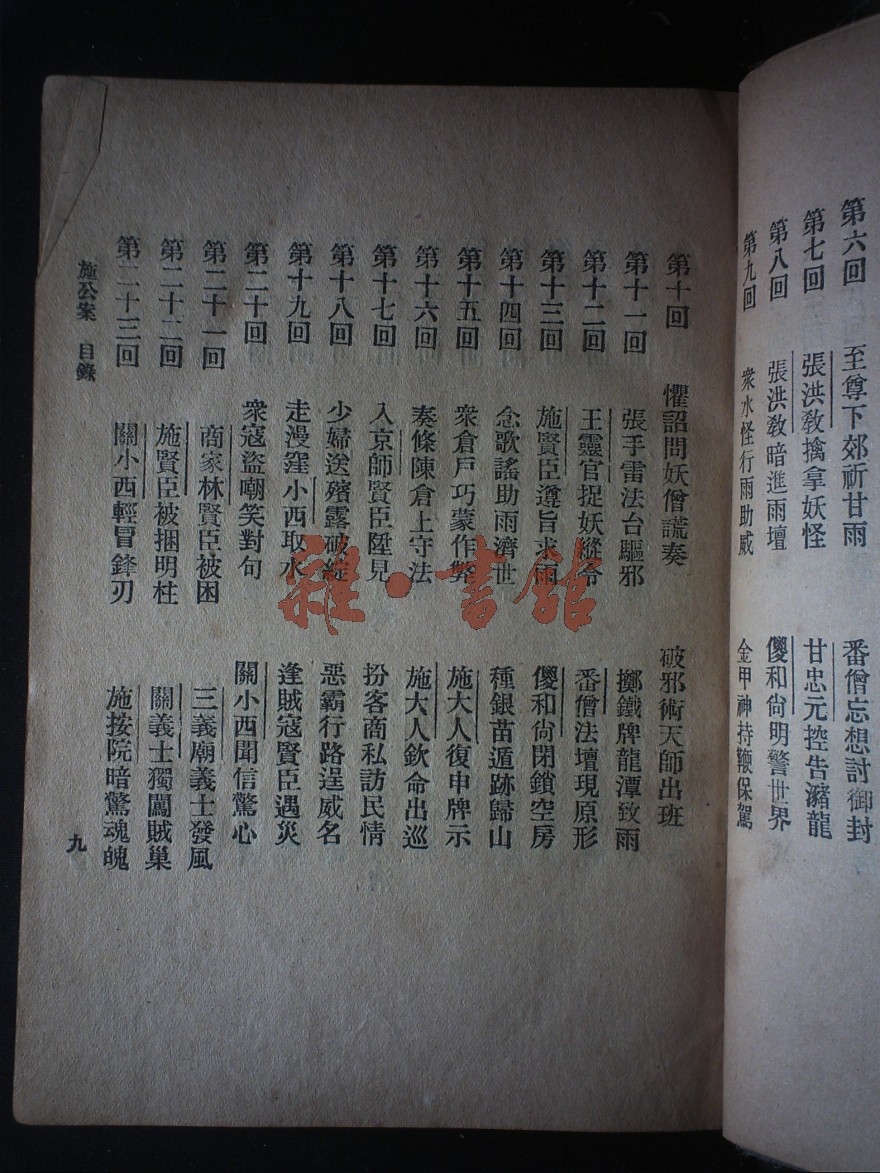 第六回 至尊下郊祈甘雨 番僧忘想討御封
第七回 張洪教擒拿妖怪 甘忠元控告瀦龍
第八回 張洪教暗進雨壇 儍和尙明警世界
第九回 衆水怪行雨助威 金甲神持鞭保駕
第十回 懼詔問妖僧謊奏 破邪術天師出班
第十一回 張手雷法台驅邪 擲鐵牌龍潭致雨
第十二回 王靈官捉妖縱令 番僧法壇現原形
第十三回 施賢臣遵旨求雨 儍和尙閉鎖空房
第十四回 念歌謠助雨濟世 種銀苗遁跡歸山
第十五回 衆倉戶巧蒙作弊 施大人復申牌示
第十六回 奏條陳倉上守法 施大人欽命出巡
第十七回 入京師賢臣陞見 扮客商私訪民情
第十八回 少婦送殯露破綻 惡霸行路逞威名
第十九回 走漫窪小西取水 逢賊寇賢臣遇災
第二十回 衆寇盜嘲笑對句 關小西聞信驚心
第二十一回 商家林賢臣被困 三義廟義士發風
第二十二回 施賢臣被捆明柱 關義士獨闖賊巢
第二十三回 關小西輕冒鋒刃 施按院暗驚魂魄
施公案 目錄 九
雜·書館